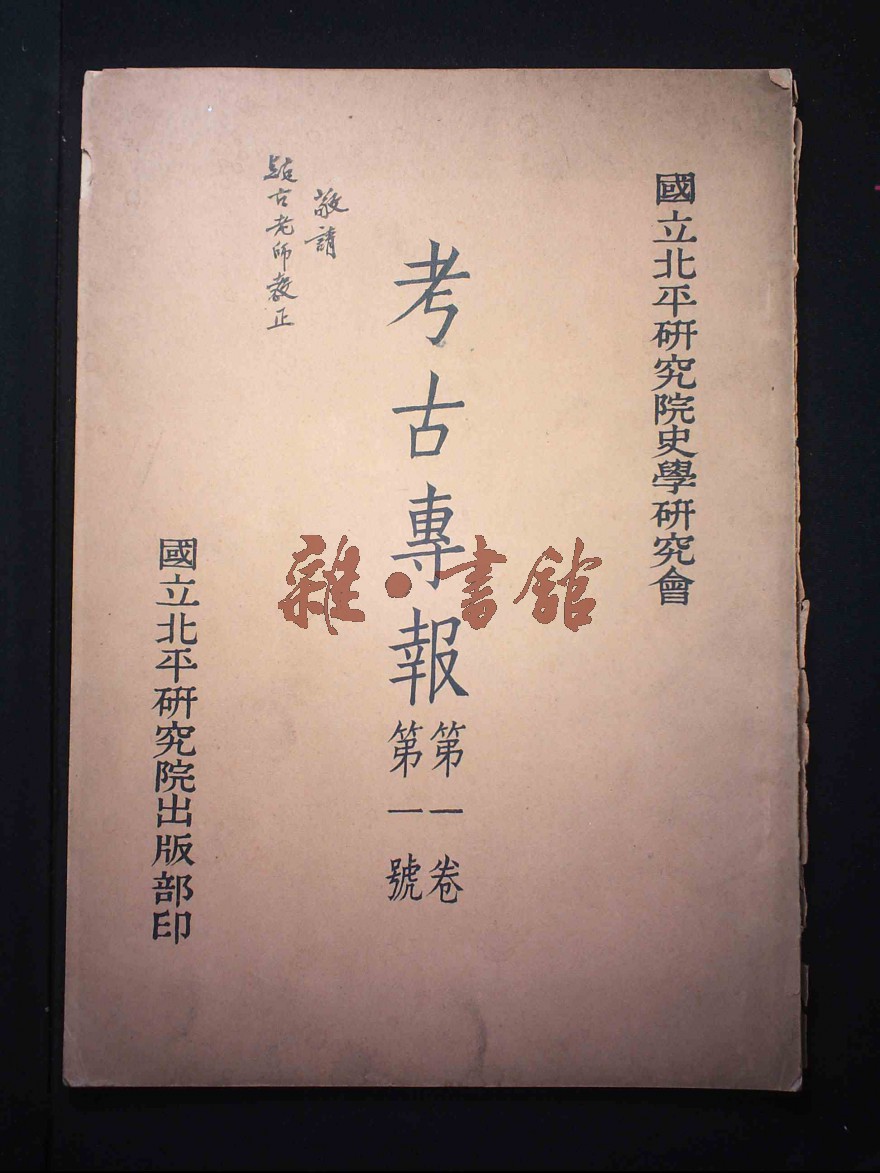 國立北平研究院史學研究會
考古專報
第一卷
第一號
敬請
古老師教正
國立北平研究院出版部印
雜·書館